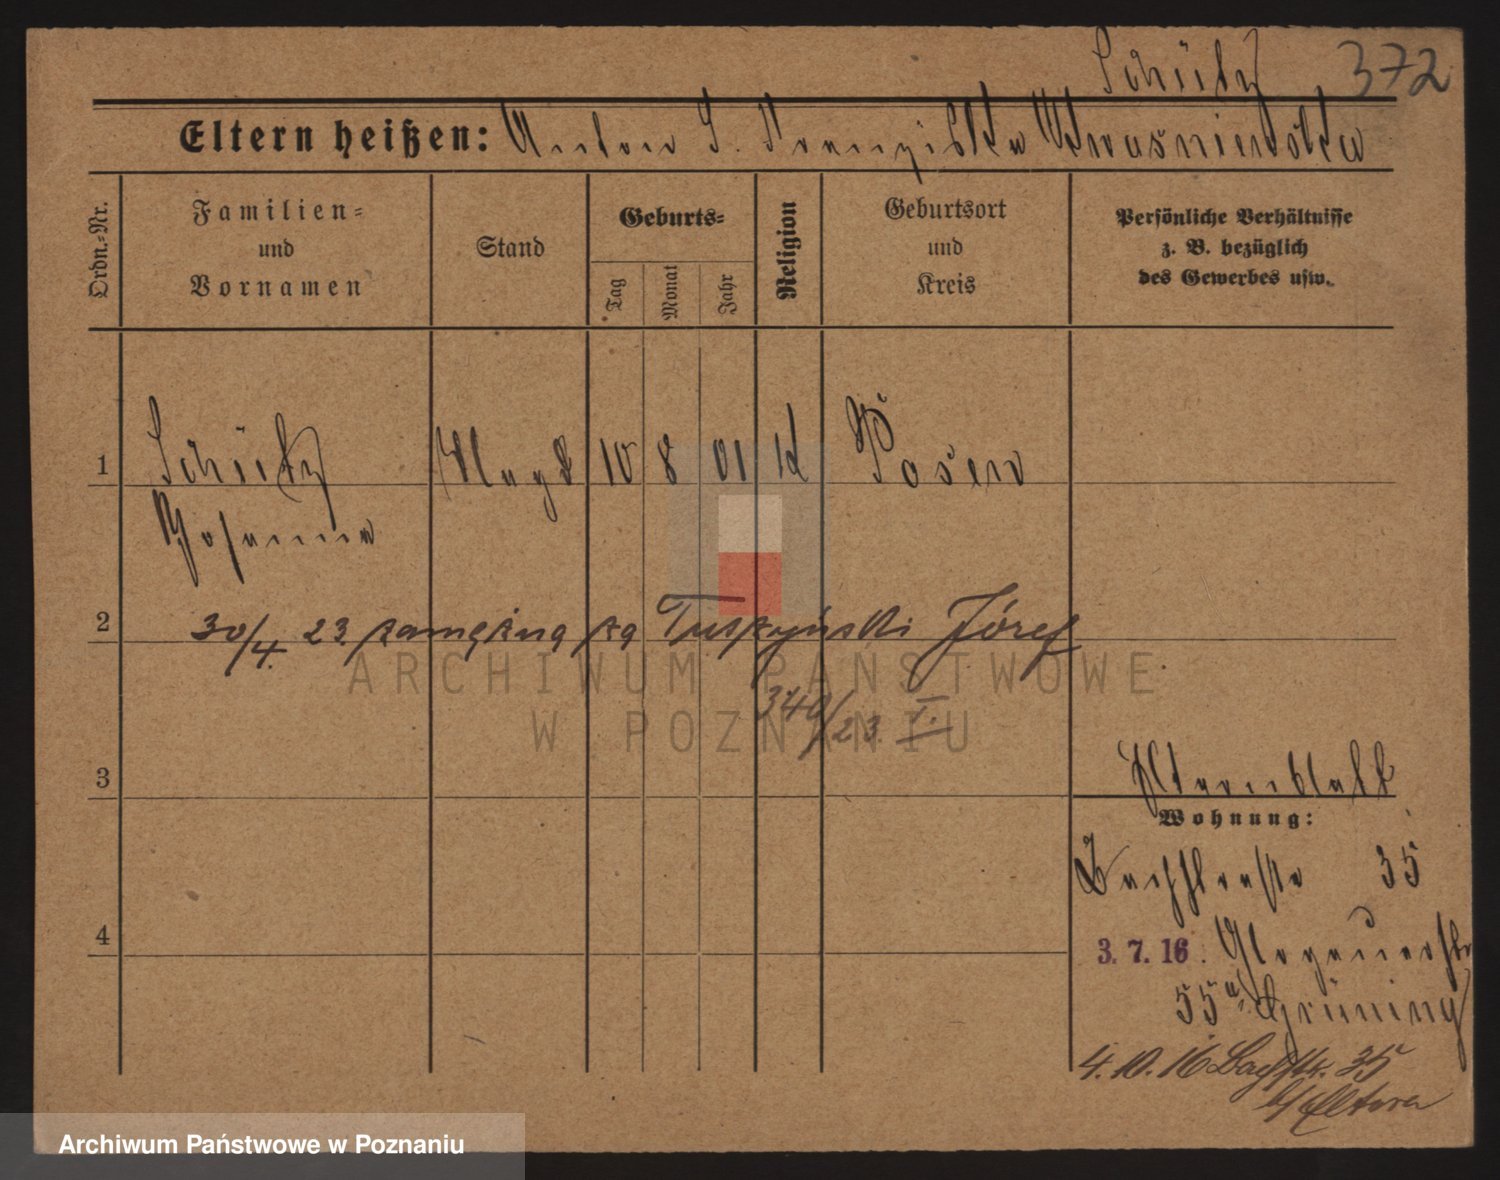 Schütz 372
Eltern heißen: Anton S. Franziska Kwasniewska
Ordn.-Nr.
Familien-
und
Vornamen
Stand
Geburts-
Tag
Monat
Jahr
Religion
Geburtsort
und
Kreis
Persönliche Verhältnisse
z. B. bezüglich
des Gewerbes usw.
1 Schütz Magd 10 8 01 k Posen
Johanna
2 30/4. 23. zamężna za Tuszyński Józef
340/23. I.
3
Wohnung:
35
4
3. 7. 16. Glogauerstr
55a Grüning
4. 10. 16 Bachstr. 35
b/ Eltern
ARCHIWUM PAŃSTWOWE
W POZNANIU
Archiwum Państwowe w Poznaniu